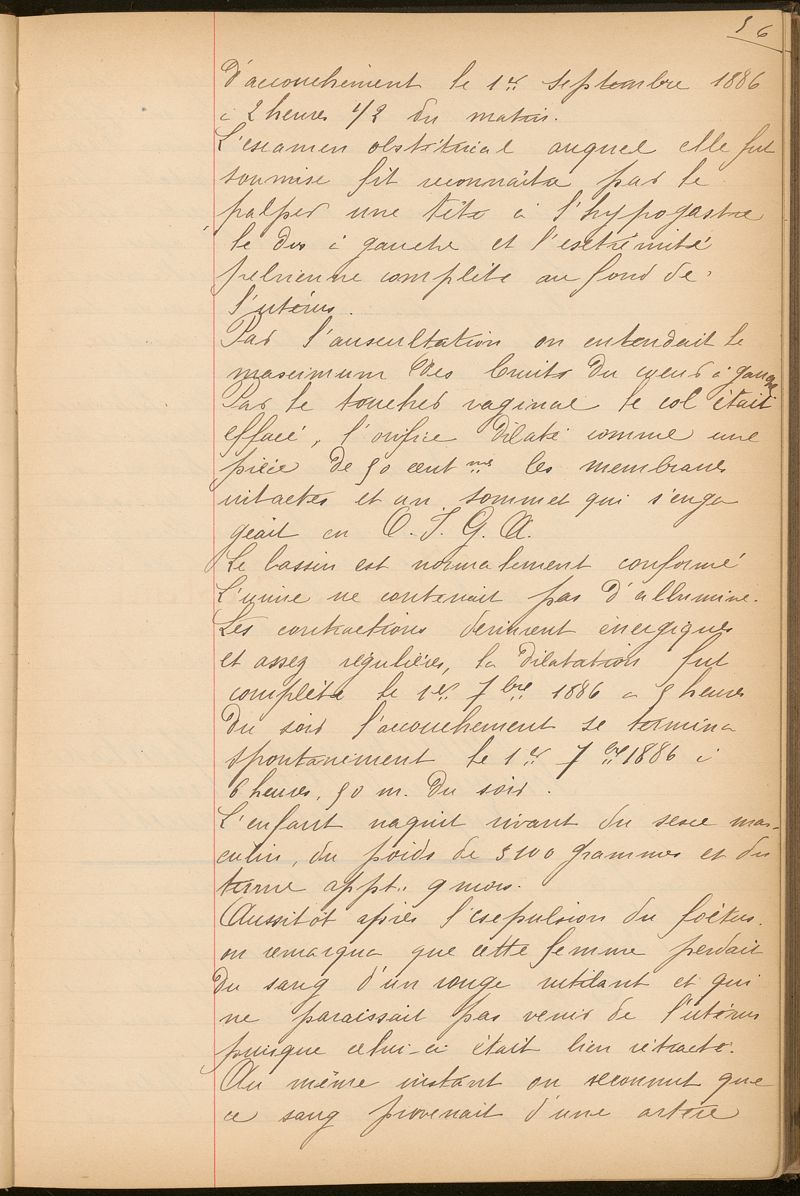 56
d'accouchement le 1er Septembre 1886
à 2 heures 1/2 du matin.
L'examen obstétrical auquel elle fut
soumise fit reconnaître par le
palper une tête à l'hypogastre
le dos à gauche et l'extrémité
pelvienne complète au fond de
l'utérus.
Par l'auscultation on entendait le
maximum des bruits du cœur à gauche
Par le toucher vaginal le col était
effacé, l'orifice dilaté comme une
pièce de 50 centmes les membranes
intactes et un sommet qui s'enga
geait en O.I.G.A.
Le bassin est normalement conformé
L'urine ne contenait pas d'albumine.
Les contractions devinrent énergiques
et assez régulières, la dilatation fut
complète le 1er 7bre 1886 à 5 heures
du soir l'accouchement se termina
spontanément le 1er 7bre 1886 à
6 heures, 50 m. du soir.
L'enfant naquit vivant du sexe mas-
culin, du poids de 3100 grammes et du
terme appt. 9 mois.
Aussitôt après l'expulsion du foetus.
on remarqua que cette femme perdait
du sang d'un rouge rutilant et qui
ne paraissait pas venir de l'utérus
puisque celui-ci était bien rétracté.
Au même instant on reconnut que
ce sang provenait d'une artère